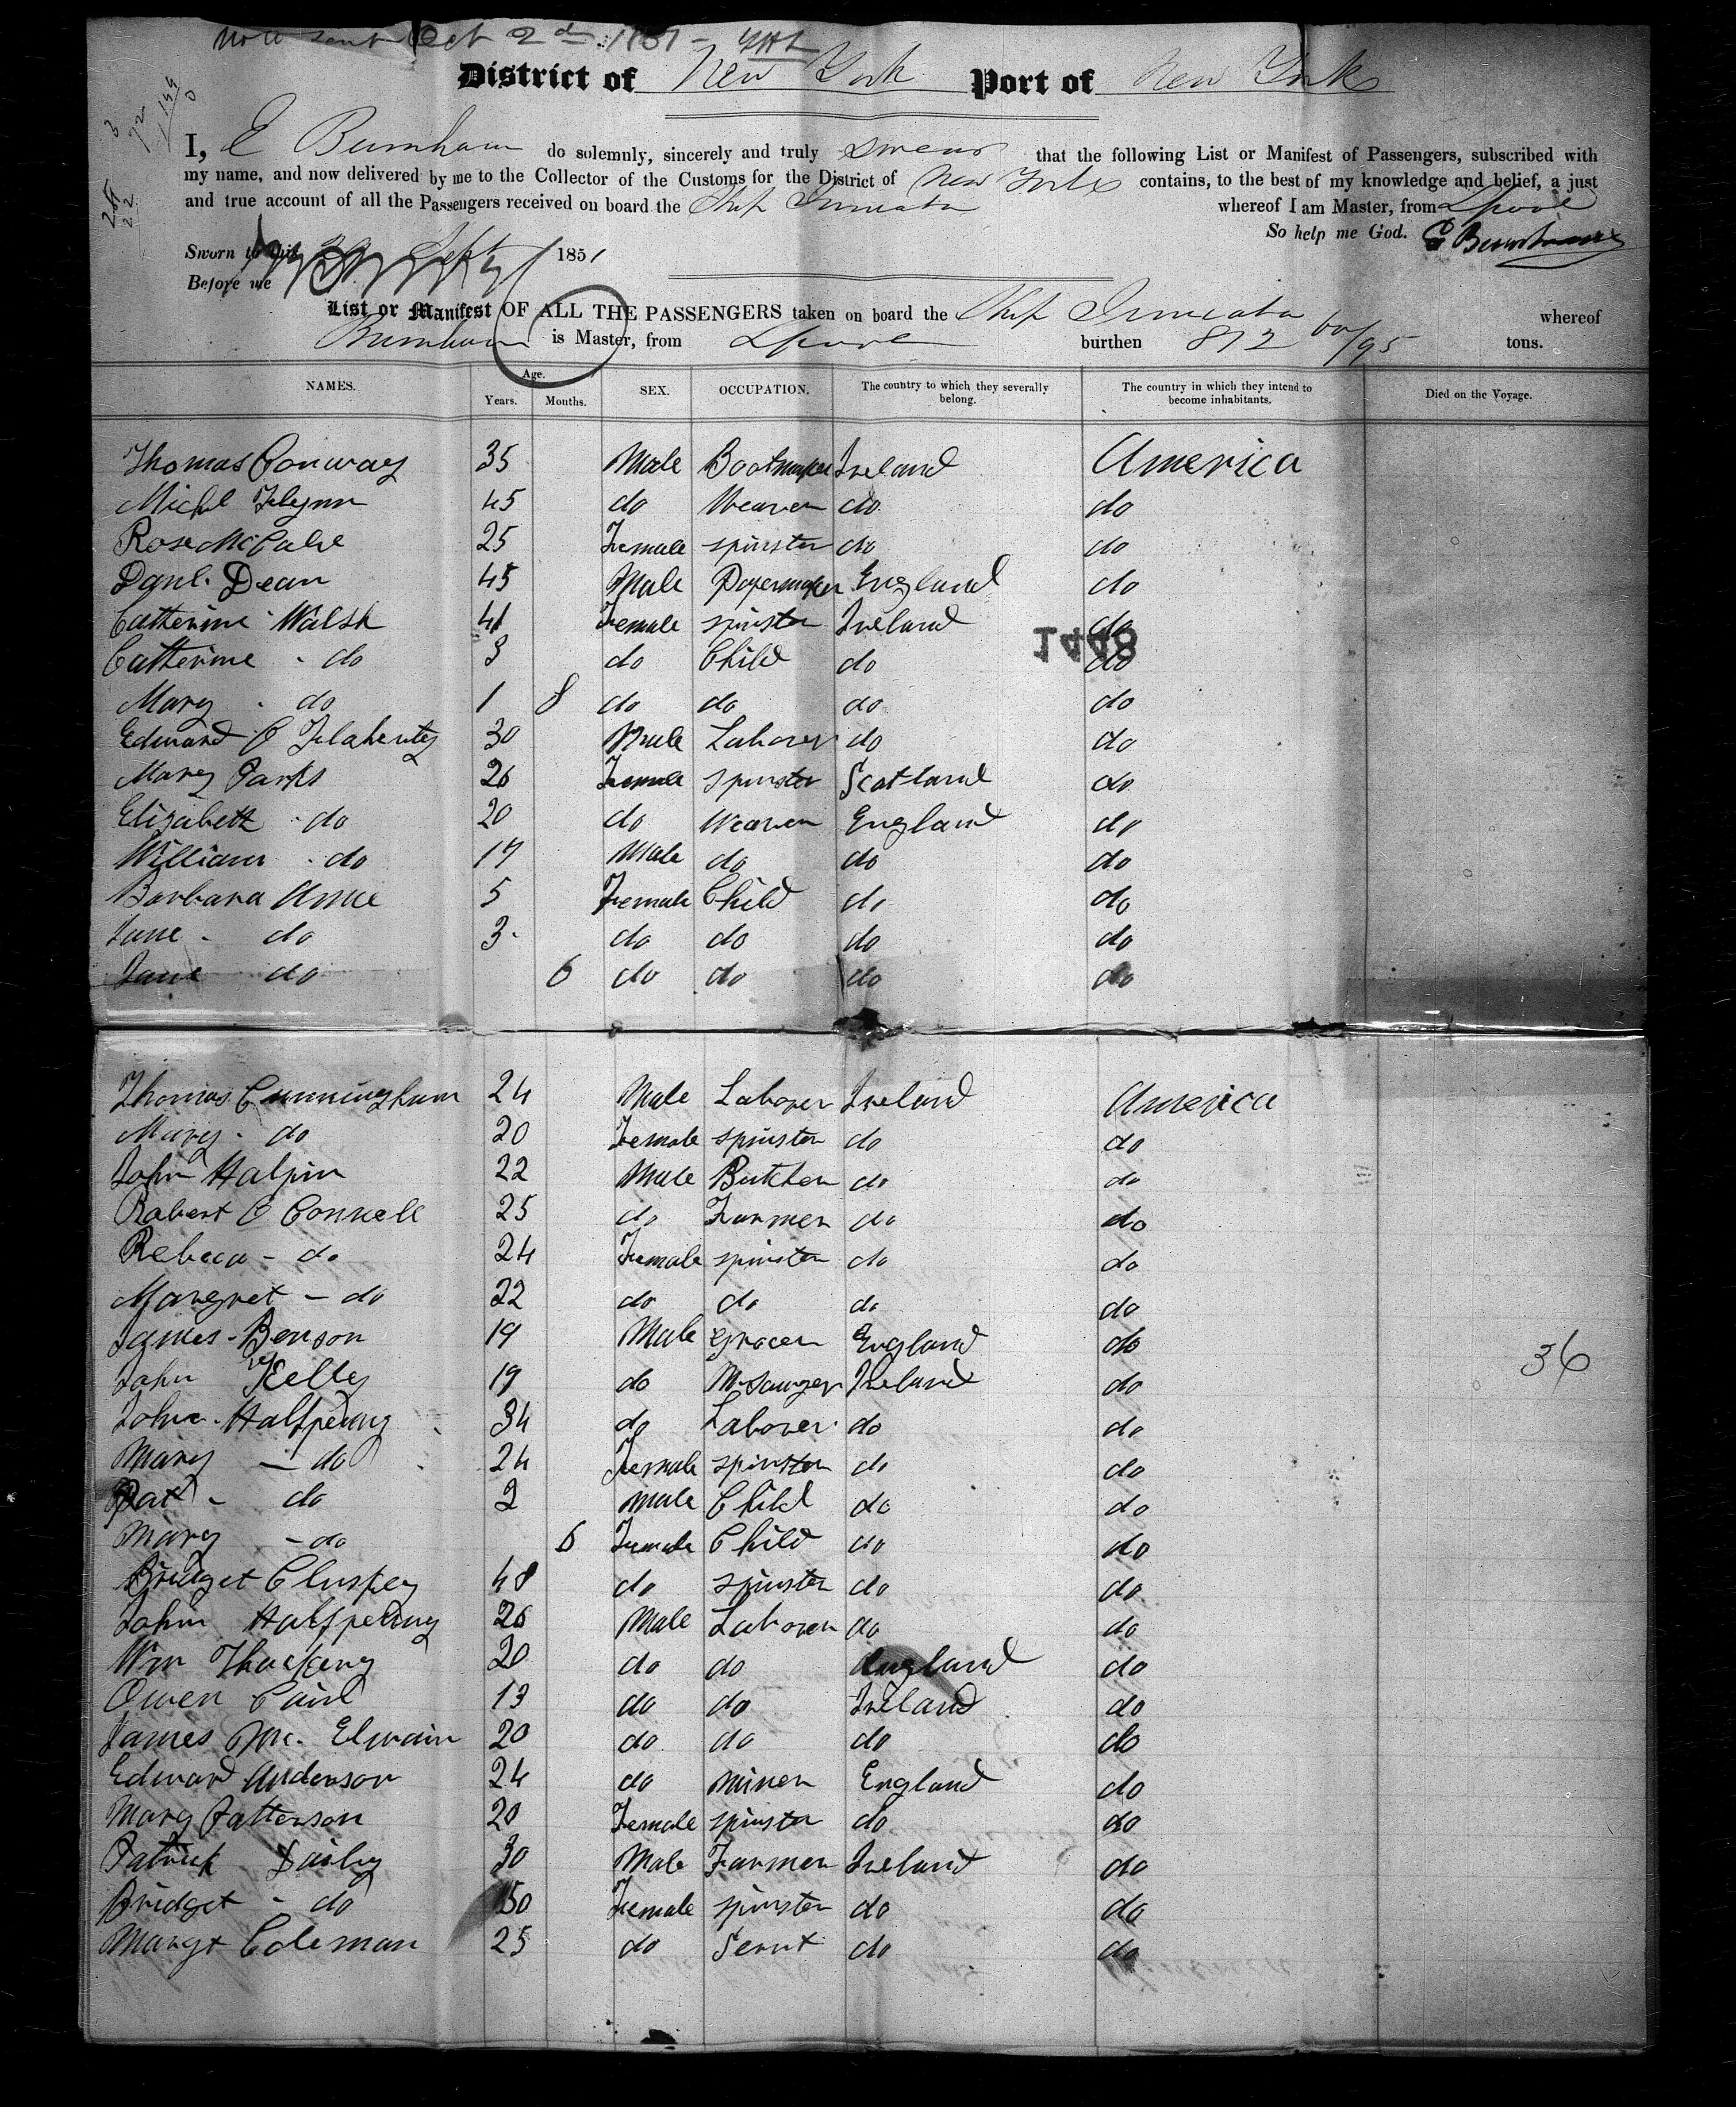 Note sent Oct 2d 1851 -
District of New York Port of New York
I, E Burnham do solemnly, sincerely and truly swear that the following List or Manifest of Passengers, subscribed with
my name, and now delivered by me to the Collector of the Customs for the District of New York contains, to the best of my knowledge and belief, a just
and true account of all the Passengers received on board the Ship whereof I am Master, from Lpool
So help me God. E Burnham
Sworn to this Sept 1851
Before me
List or Manifest OF ALL THE PASSENGERS taken on board the Ship whereof
Burnham is Master, from Lpool burthen 872 60/95 tons.
NAMES. Age. Years. Months. SEX. OCCUPATION. The country to which they severally belong. The country in which they intend to become inhabitants. Died on the Voyage.
Thomas Conway 35 Male Bootmaker Ireland America
Michl Flynn 45 do Weaver do do
Rose McCabe 25 Female spinster do do
Danl. Dean 45 Male Papermaker England do
Catherine Walsh 41 Female spinster Ireland do
1448
Catherine do 3 do Child do do
Mary do 1 8 do do do do
Edward O Flaherty 30 Male Laborer do do
Mary Parks 26 Female spinster Scotland do
Elizabeth do 20 do Weaver England do
William do 17 Male do do do
Barbara Anne 5 Female Child do do
Jane do 3 do do do do
Jane do 6 do do do do
Thomas Cunningham 24 Male Laborer Ireland America
Mary do 20 Female spinster do do
John Halpin 22 Male Butcher do do
Robert O Connell 25 do Farmer do do
Rebeca - do 24 Female spinster do do
Margret - do 22 do do do do
James - Benson 19 Male Grocer England do
John Kelly 19 do Ireland do
36
John - Halfpenny 34 do Laborer do do
Mary - do 24 Female spinster do do
Pat - do 2 Male Child do do
Mary - do 6 Female Child do do
Bridget Cluskey 48 do spinster do do
John Halfpenny 26 Male Laborer do do
Wm Thackery 20 do do England do
Owen 13 do do Ireland do
James Mc. Elwain 20 do do do do
Edward Anderson 24 do Miner England do
Mary Patterson 20 Female spinster do do
Patrick 30 Male Farmer Ireland do
Bridget - do 50 Female spinster do do
Margt Coleman 25 do Servt do do